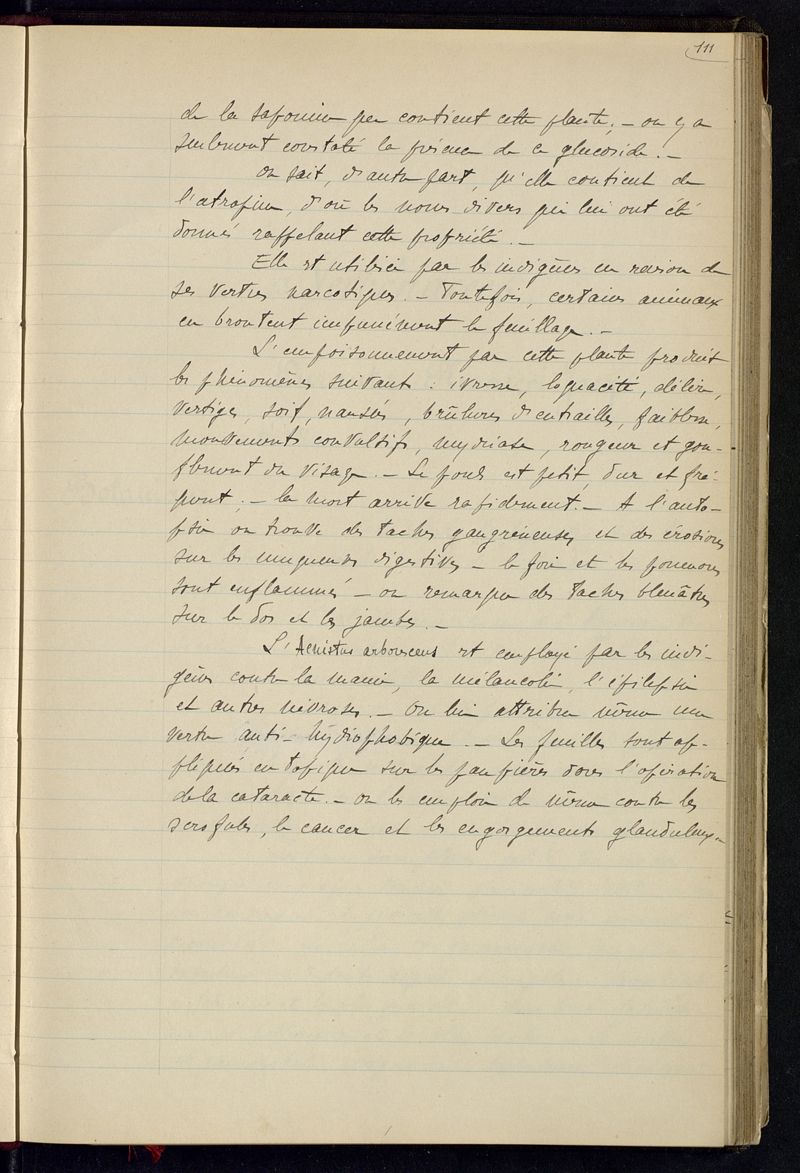 111
de la saponine que contient cette plante; – on y a
seulement constaté la présence de ce glucoside. –
On sait, d'autre part, qu'elle contient de
l'atropine, d'où les noms divers qui lui ont été
donnés rappelant cette propriété. –
Elle est utilisée par les indigènes en raison de
ses vertus narcotiques. – Toutefois, certains animaux
en broutent impunément le feuillage. –
L'empoisonnement par cette plante produit
les phénomènes suivants : ivresse, loquacité, délire,
vertiges, soif, nausées, brûlures d'entrailles, faiblesse,
mouvements convulsifs, mydriase, rougeur et gon-
flement du visage. – Le pouls est petit, dur et fré-
quent; – la mort arrive rapidement. – A l'auto-
psie on trouve des taches gangréneuses et des érosions
sur les muqueuses digestives – le foie et les poumons
sont enflammés – on remarque des taches bleuâtres
sur le dos et les jambes. –
L'Acnistus arborescens est employé par les indi-
gènes contre la manie, la mélancolie, l'épilepsie
et autres névroses. – On lui attribue même une
vertu anti-hydrophobique. – Les feuilles sont ap-
pliquées en topique sur les paupières dans l'opération
de la cataracte. – on les emploie de même contre les
scrofules, le cancer et les engorgements glanduleux –